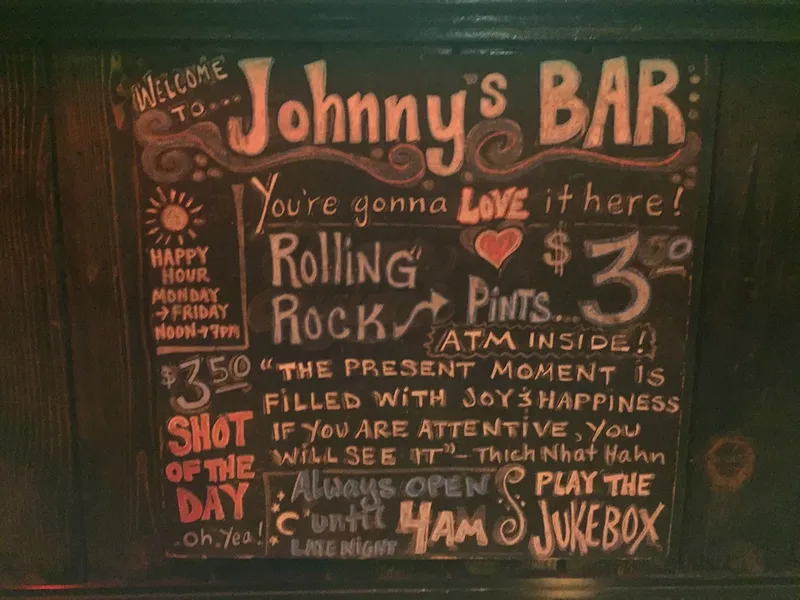 WELCOME
TO.... Johnny's BAR
You're gonna LOVE it here!
HAPPY
HOUR
MONDAY
→ FRIDAY
NOON → 7PM
Rolling
ROCK → PINTS... $3.50
ATM INSIDE!
$3.50
SHOT
OF THE
DAY
oh yea!
"THE PRESENT MOMENT IS
FILLED WITH JOY & HAPPINESS
IF YOU ARE ATTENTIVE, YOU
WILL SEE IT" - Thich Nhat Hahn
Always OPEN
until 4AM
LATE NIGHT
PLAY THE
JUKEBOX